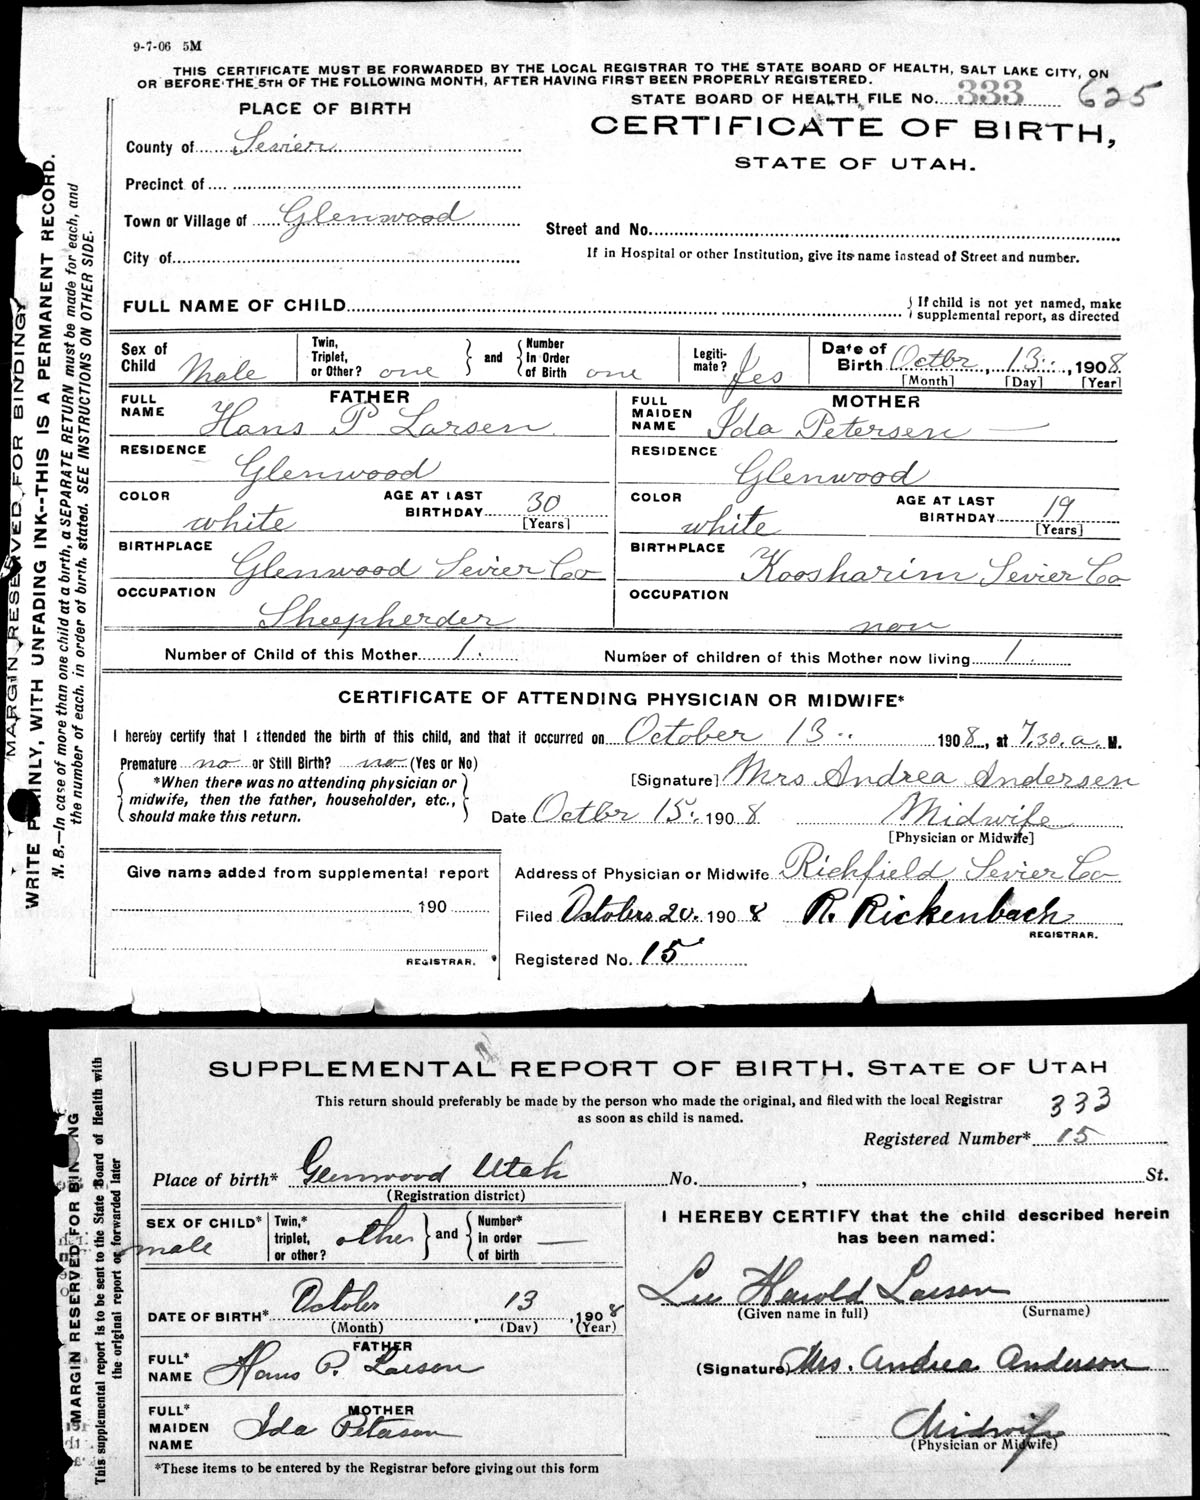 9-7-06 5M
THIS CERTIFICATE MUST BE FORWARDED BY THE LOCAL REGISTRAR TO THE STATE BOARD OF HEALTH, SALT LAKE CITY, ON
OR BEFORE THE 5TH OF THE FOLLOWING MONTH, AFTER HAVING FIRST BEEN PROPERLY REGISTERED.
STATE BOARD OF HEALTH, FILE No. 333 625
PLACE OF BIRTH
CERTIFICATE OF BIRTH,
STATE OF UTAH.
County of Sevier
Precinct of
Town or Village of Glenwood
Street and No.
City of
If in Hospital or other Institution, give its name instead of Street and number.
FULL NAME OF CHILD
If child is not yet named, make
supplemental report, as directed
Sex of Child Male
Twin, Triplet, or Other? one and Number In Order of Birth one
Legiti-mate? Yes
Date of Birth Octbr, 13, 1908
[Month] [Day] [Year]
FATHER
FULL NAME Hans P Larsen
RESIDENCE Glenwood
COLOR white
AGE AT LAST BIRTHDAY 30 [Years]
BIRTHPLACE Glenwood Sevier Co
OCCUPATION Sheepherder
MOTHER
FULL MAIDEN NAME Ida Petersen —
RESIDENCE Glenwood
COLOR white
AGE AT LAST BIRTHDAY 19 [Years]
BIRTHPLACE Koosharim Sevier Co
OCCUPATION non
Number of Child of this Mother 1.
Number of children of this Mother now living 1.
CERTIFICATE OF ATTENDING PHYSICIAN OR MIDWIFE*
I hereby certify that I attended the birth of this child, and that it occurred on October 13 1908, at 7.30. a. M.
Premature no or Still Birth? no (Yes or No)
*When there was no attending physician or
midwife, then the father, householder, etc.,
should make this return.
[Signature] Mrs Andrea Andersen
Date Octbr 15. 1908 Midwife
[Physician or Midwife]
Give name added from supplemental report
190
REGISTRAR.
Address of Physician or Midwife Richfield Sevier Co
Filed October 20. 1908 R. Rickenbach
REGISTRAR.
Registered No. 15
MARGIN RESERVED FOR BINDING
WRITE PLAINLY, WITH UNFADING INK--THIS IS A PERMANENT RECORD.
N. B.—In case of more than one child at a birth, a SEPARATE RETURN must be made for each, and
the number of each, in order of birth, stated. SEE INSTRUCTIONS ON OTHER SIDE.
SUPPLEMENTAL REPORT OF BIRTH, STATE OF UTAH
This return should preferably be made by the person who made the original, and filed with the local Registrar
as soon as child is named.
333
Registered Number* 15
Place of birth* Glenwood Utah No. , St.
(Registration district)
SEX OF CHILD* male
Twin,* triplet, or other? other and Number* in order of birth —
DATE OF BIRTH* October 13, 1908
(Month) (Day) (Year)
FATHER
FULL* NAME Hans P. Larson
MOTHER
FULL* MAIDEN NAME Ida Peterson
*These items to be entered by the Registrar before giving out this form
I HEREBY CERTIFY that the child described herein
has been named:
Leu Harold Larson
(Given name in full) (Surname)
(Signature) Mrs. Andrea Anderson
Midwife
(Physician or Midwife)
MARGIN RESERVED FOR BINDING
This supplemental report is to be sent to the State Board of Health with
the original report or forwarded later